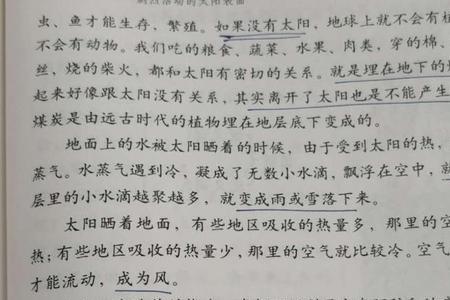 剧烈活动的太阳表面
虫、鱼才能生存、繁殖。如果没有太阳，地球上就不会有植
不会有动物。我们吃的粮食、蔬菜、水果、肉类，穿的棉、
丝，烧的柴火，都和太阳有密切的关系。就是埋在地下的
起来好像跟太阳没有关系，其实离开了太阳也是不能产生
煤炭是由远古时代的植物埋在地层底下变成的。
地面上的水被太阳晒着的时候，由于受到太阳的热，
蒸气。水蒸气遇到冷，凝成了无数小水滴，飘浮在空中，
层里的小水滴越聚越多，就变成雨或雪落下来。
太阳晒着地面，有些地区吸收的热量多，那里的空
热；有些地区吸收的热量少，那里的空气就比较冷。空气
才能流动，成为风。